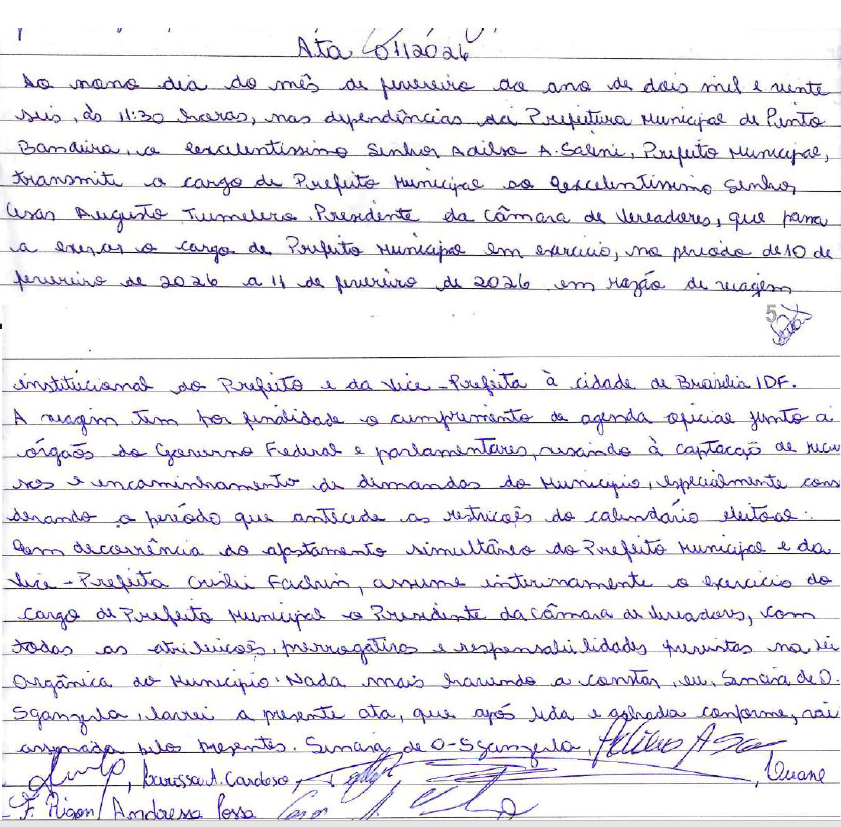 Ata 01/2026
Ao nono dia do mês de fevereiro do ano de dois mil e vinte
seis, às 11:30 horas, nas dependências da Prefeitura Municipal de Pinto
Bandeira, o excelentíssimo Senhor Adilso A. Salini, Prefeito Municipal,
transmite o cargo de Prefeito Municipal ao excelentíssimo Senhor
Cesar Augusto Tumelero, Presidente da Câmara de Vereadores, que passa
a exercer o cargo de Prefeito Municipal em exercício, no período de 10 de
fevereiro de 2026 a 11 de fevereiro de 2026 em razão de viagem
5
institucional do Prefeito e da Vice-Prefeita à cidade de Brasília/DF.
A viagem tem por finalidade o cumprimento de agenda oficial junto a
órgãos do Governo Federal e parlamentares, visando à captação de recur
sos e encaminhamento de demandas do Município, especialmente consi
derando o período que antecede as restrições do calendário eleitoral.
Em decorrência do afastamento simultâneo do Prefeito Municipal e da
Vice-Prefeita Fachin, assume interinamente o exercício do
cargo de Prefeito Municipal o Presidente da Câmara de Vereadores, com
todas as atribuições, prerrogativas e responsabilidades previstas na Lei
Orgânica do Município. Nada mais havendo a constar, eu, Simara de O.
Sganzerla, lavrei a presente ata, que após lida e achada conforme, vai
assinada pelos presentes. Simara de O. Sganzerla,
Larissa A. Cardoso,
F. Rigon, Andressa Possa